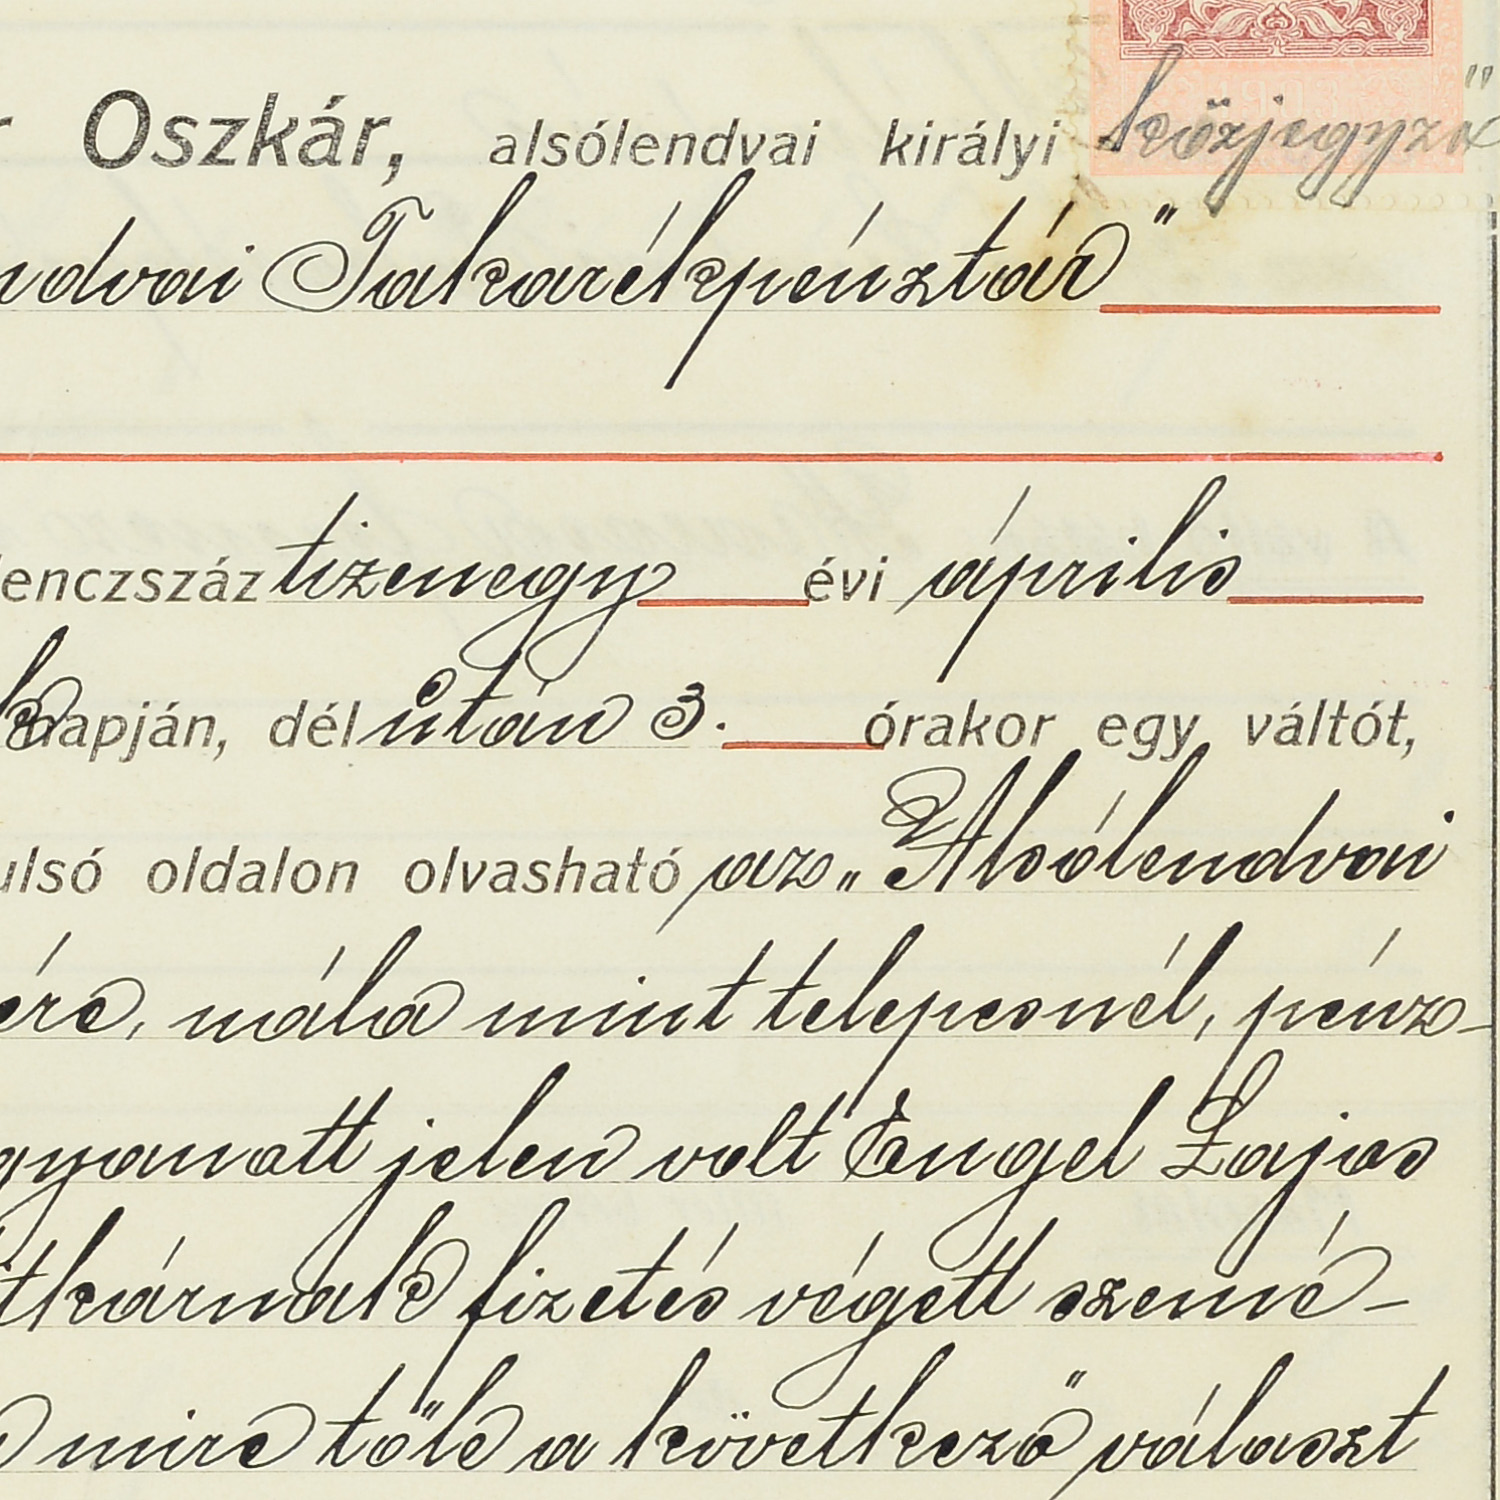 r Oszkár, alsólendvai királyi közjegyző
ndvai Takarékpénztár"
lenczszáz tizenegy évi április
napján, délután 3. órakor egy váltót,
ulsó oldalon olvasható az „Alsólendvai
ére, nála mint telepesnél, pénz-
gyanatt jelen volt Engel Lajos
itkárnak fizetés végett szemé-
mire tőle a következő választ